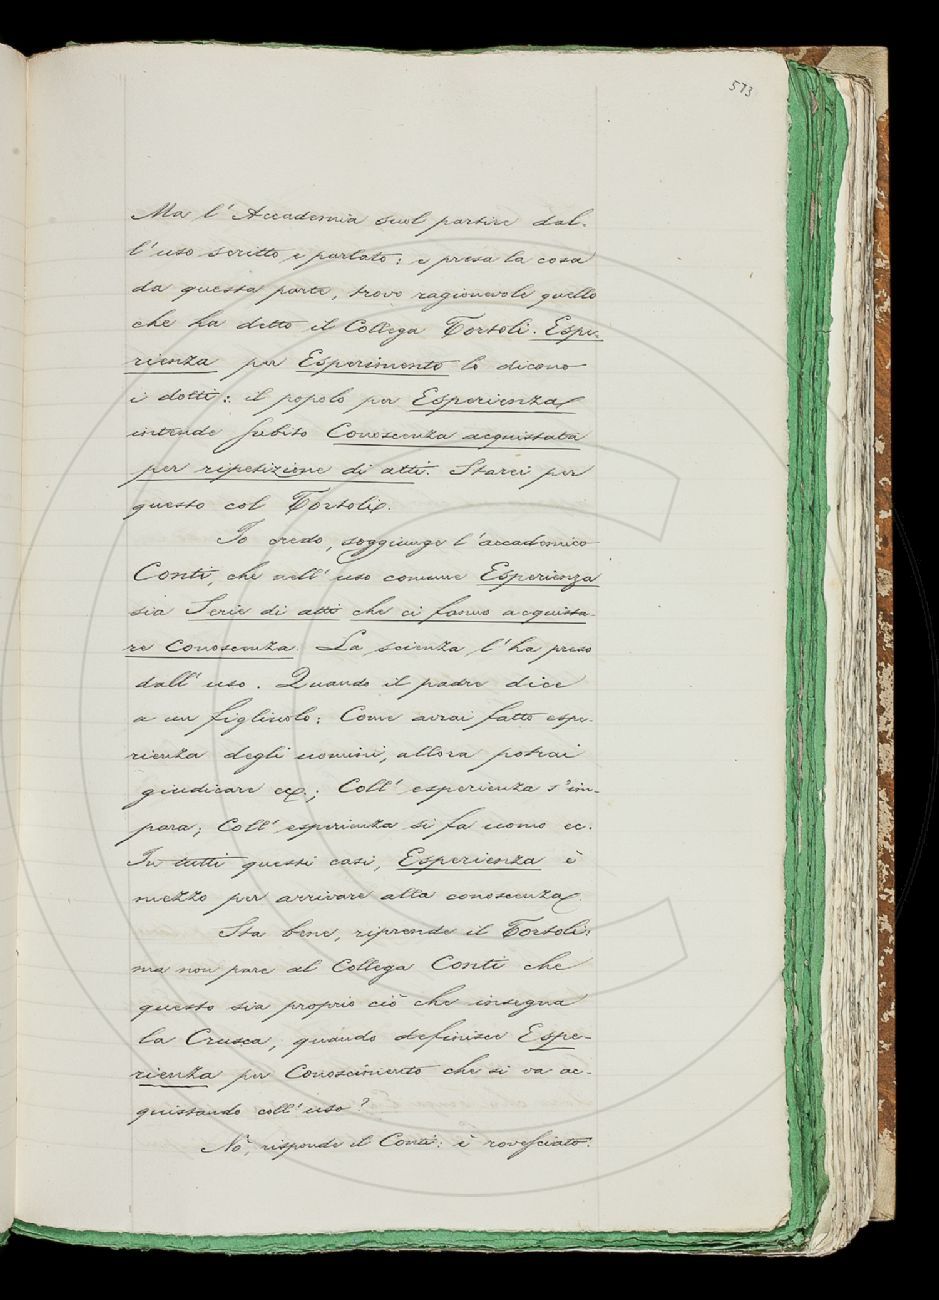 573
Ma l'Accademia suol partire dal-
l'uso scritto e parlato: e presa la cosa
da questa parte, trovo ragionevole quello
che ha detto il Collega Tortoli. Espe-
rienza per Esperimento lo dicono
i dotti: il popolo per Esperienza
intende subito Conoscenza acquistata
per ripetizione di atti. Starei per
questo col Tortoli.
Io credo, soggiunge l'accademico
Conti, che nell'uso comune Esperienza
sia Serie di atti che ci fanno acquista-
re Conoscenza. La scienza l'ha preso
dall'uso. Quando il padre dice
a un figliuolo: Come avrai fatto espe-
rienza degli uomini, allora potrai
giudicare ec.; Coll'esperienza s'im-
para; Coll'esperienza si fa uomo ec.
In tutti questi casi, Esperienza è
mezzo per arrivare alla conoscenza.
Sta bene, riprende il Tortoli:
ma non pare al Collega Conti che
questo sia proprio ciò che insegna
la Crusca, quando definisce Espe-
rienza per Conoscimento che si va ac-
quistando coll'uso?
Nò, risponde il Conti: è rovesciato.